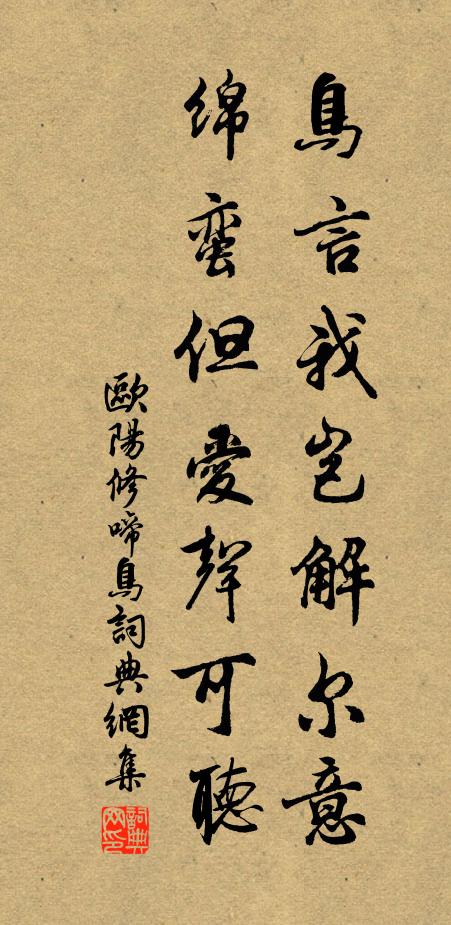 鳥言我豈解尔意
綿蛮但愛聲可聽
歐陽修啼鳥詞典網集
詞典
网印